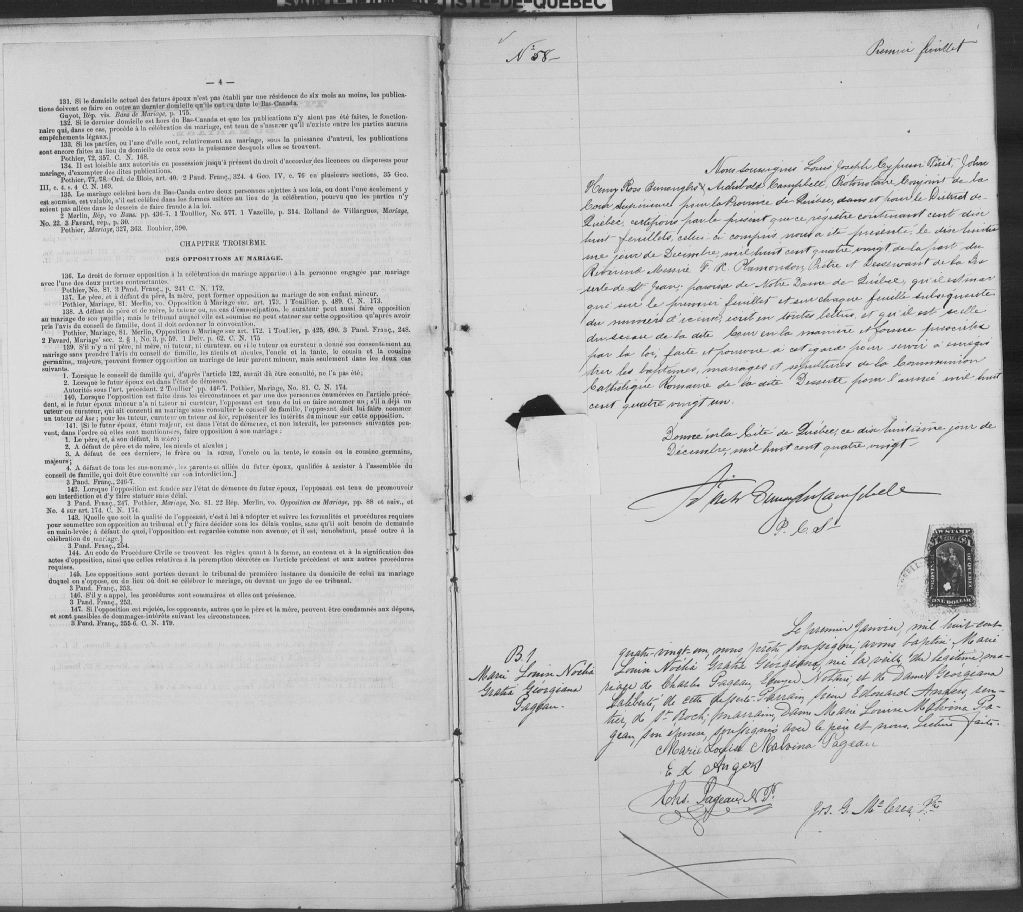 SAINT-JEAN-BAPTISTE-DE-QUÉBEC
— 4 —
131. Si le domicile actuel des futurs époux n'est pas établi par une résidence de six mois au moins, les publica-
tions doivent se faire en outre au dernier domicile qu'ils ont eu dans le Bas-Canada.
Guyot, Rép. vis. Bans de Mariage, p. 175.
132. Si le dernier domicile est hors du Bas-Canada et que les publications n'y aient pas été faites, le fonction-
naire qui, dans ce cas, procède à la célébration du mariage, est tenu de s'assurer qu'il n'existe entre les parties aucuns
empêchements légaux.]
133. Si les parties, ou l'une d'elle sont, relativement au mariage, sous la puissance d'autrui, les publications
sont encore faites au lieu du domicile de ceux sous la puissance desquels elles se trouvent.
Pothier, 72, 357. C. N. 168.
134. Il est loisible aux autorités en possession jusqu'à présent du droit d'accorder des licences ou dispenses pour
mariage, d'exempter des dites publications.
Pothier, 77, 78.- Ord. de Blois, art. 40. 2 Pand. Franç., 324. 4 Geo. IV, c. 76 en plusieurs sections, 35 Geo.
III, c. 4. s. 4 C. N. 169.
135. Le mariage célébré hors du Bas-Canda entre deux personnes sujettes à ses lois, ou dont l'une seulement y
est soumise, est valable, s'il est célébré dans les formes usitées au lieu de la célébration, pourvu que les parties n'y
soient pas allées dans le dessein de faire fraude à la loi.
2 Merlin, Rép, vo Bans. pp. 436-7. 1 Toullier, No. 577. 1 Vazeille, p. 314. Rolland de Villargues, Mariage,
No. 22. 3 Favard, rép., p. 30.
Pothier, Mariage, 327, 363. Bouhier, 390.
CHAPITRE TROISIÈME.
DES OPPOSITIONS AU MARIAGE.
136. Le droit de former opposition à la célébration du mariage appartient à la personne engagée par mariage
avec l'une des deux parties contractantes.
Pothier, No. 81. 3 Pand. Franç., p. 241 C. N. 172.
137. Le père, et à défaut du père, la mère, peut former opposition au mariage de son enfant mineur.
Pothier, Mariage, 81. Merlin, vo. Opposition à Mariage sur. art. 173. 1 Touillier, p. 489. C. N. 173.
138. A défaut de père et de mère, le tuteur ou, au cas d'émancipation, le curateur peut aussi faire opposition
au mariage de son pupille; mais le tribunal auquel elle est soumise ne peut statuer sur cette opposition qu'après avoir
pris l'avis du conseil de famille, dont il doit ordonner la convocation.
Pothier, Mariage, 81. Merlin, Opposition à Mariage sur art. 172. 1 Toullier, p. 425, 490. 3 Pand. Franç., 248.
2 Favard, Mariage sec. 2. § 1, No. 3, p. 59. 1 Delv. p. 62. C. N. 175
139. S'il n'y a ni père, ni mère, ni tuteur, ni curateur, ou si le tuteur ou curateur a donné son consentement au
mariage sans prendre l'avis du conseil de famille, les aïeuls et aïeules, l'oncle et la tante, le cousin et la cousine
germains, majeurs, peuvent former opposition au mariage de leur parent mineur, mais seulement dans les deux cas
suivants.
1. Lorsque le conseil de famille qui, d'après l'article 122, aurait dû être consulté, ne l'a pas été;
2. Lorsque le futur époux est dans l'état de démence.
Autorités sous l'art. précédent. 2 Toullier pp. 446-7. Pothier, Mariage, No. 81. C. N. 174.
140. Lorsque l'opposition est faite dans les circonstances et par une des personnes énumérées en l'article précé-
dent, si le futur époux mineur n'a ni tuteur ni curateur, l'opposant est tenu de lui en faire nommer un; s'il a déjà un
tuteur ou curateur, qui ait consenti au mariage sans consulter le conseil de famille, l'opposant doit lui faire nommer
un tuteur ad hoc; pour les tuteur, curateur ou tuteur ad hoc, représenter les intérêts du mineur sur cette opposition.
141. [Si le futur époux, étant majeur, est dans l'état de démence, et non interdit, les personnes suivantes peu-
vent, dans l'ordre où elles sont mentionnées, faire opposition à son mariage:
1. Le père, et, à son défaut, la mère;
2. A défaut de père et de mère, les aïeuls et aïeules;
3. A défaut de ces derniers, le frère ou la sœur, l'oncle ou la tante, le cousin ou la cousine germains,
majeurs;
4. A défaut de tous les sus-nommés, les parents et alliés du futur époux, qualifiés à assister à l'assemblée du
conseil de famille, qui doit être consulté sur son interdiction.]
3 Pand. Franç., 246-7.
142. Lorsque l'opposition est fondée sur l'état de démence du futur époux, l'opposant est tenu de promouvoir
son interdiction et d'y faire statuer sans délai.
3 Pand. Franç., 247. Pothier, Mariage, No. 81. 22 Rép. Merlin, vo. Opposition au Mariage, pp. 88 et suiv., et
No. 4 sur art. 174. C. N. 174.
143. [Quelle que soit la qualité de l'opposant, c'est à lui à adopter et suivre les formalités et procédures requises
pour soumettre son opposition au tribunal et l'y faire décider sous les délais voulus, sans qu'il soit besoin de demande
en main-levée; à défaut de quoi, l'opposition est regardée comme non avenue, et il est, nonobstant, passé outre à la
célébration du mariage.]
3 Pand. Franç., 254.
144. Au code de Procédure Civile se trouvent les règles quant à la forme, au contenu et à la signification des
actes d'opposition, ainsi que celles relatives à la péremption décrétée en l'article précédent et aux autres procédures
requises.
145. Les oppositions sont portées devant le tribunal de première instance du domicile de celui au mariage
duquel on s'oppose, ou du lieu où doit se célébrer le mariage, ou devant un juge de ce tribunal.
3 Pand. Franç., 253.
146. S'il y a appel, les procédures sont sommaires et elles ont préséance.
3 Pand. Franç., 253.
147. Si l'opposition est rejetée, les opposants, autres que le père et la mère, peuvent être condamnés aux dépens,
et sont passibles de dommages-intérêts suivant les circonstances.
3 Pand. Franç., 255-6. C. N. 179.
No 58
Premier feuillet
Nous Soussignés Louis Joseph Cyprien Fiset, John
Henry Ross Burroughs & Archibald Campbell, Protonotaire Conjoint de la
Cour Supérieure pour la Province de Québec, dans et pour le District de
Québec, certifions par le présent que ce registre contenant cent dix
huit feuillets, celui-ci compris, nous a été présenté, le dix huitiè
me jour de Décembre, mil huit cent quatre vingt de la part du
Révérend Messire F. R. Plamondon, Prêtre et Desservant de la De
serte de St Jean, paroisse de Notre Dame de Québec, qu'il est mar
qué sur le premier feuillet et sur chaque feuille subséquente
du numéro d'iceux, écrit en toutes lettres, et qu'il est scellé
du sceau de la dite Cour en la manière et forme prescrites
par la loi, faite et pourvue à cet égard pour servir à enregis
trer les baptêmes, mariages et sépultures de la Communion
Catholique Romaine de la dite Desserte pour l'année mil huit
cent quatre vingt un.
Donné en la Cité de Québec, ce dix huitième jour de
Décembre, mil huit cent quatre vingt.
Fiset Burroughs Campbell
P. C. S
LAW STAMP
ONE DOLLAR
B. 1
Marie Louise Noéha
Gratia Géorgiana
Pageau.
Le premier Janvier, mil huit cent
quatre-vingt-un, nous prêtre soussigné, avons baptisé Marie
Louise Noéha Gratia Georgeana, née la veille, du légitime ma-
riage de Charles Pageau, Ecuyer, Notaire, et de Dame Georgeana
Laliberté, de cette desserte. Parrain, Sieur Edouard Angers, ren-
tier, de St Roch; marraine, Dame Marie Louise Malvina Pa-
geau, son épouse, soussignés avec le père et nous. Lecture faite.
Marie Louise Malvina Pageau
E d Angers
Chs. Pageau N.P.
Jos. G. Mc Crea Ptre